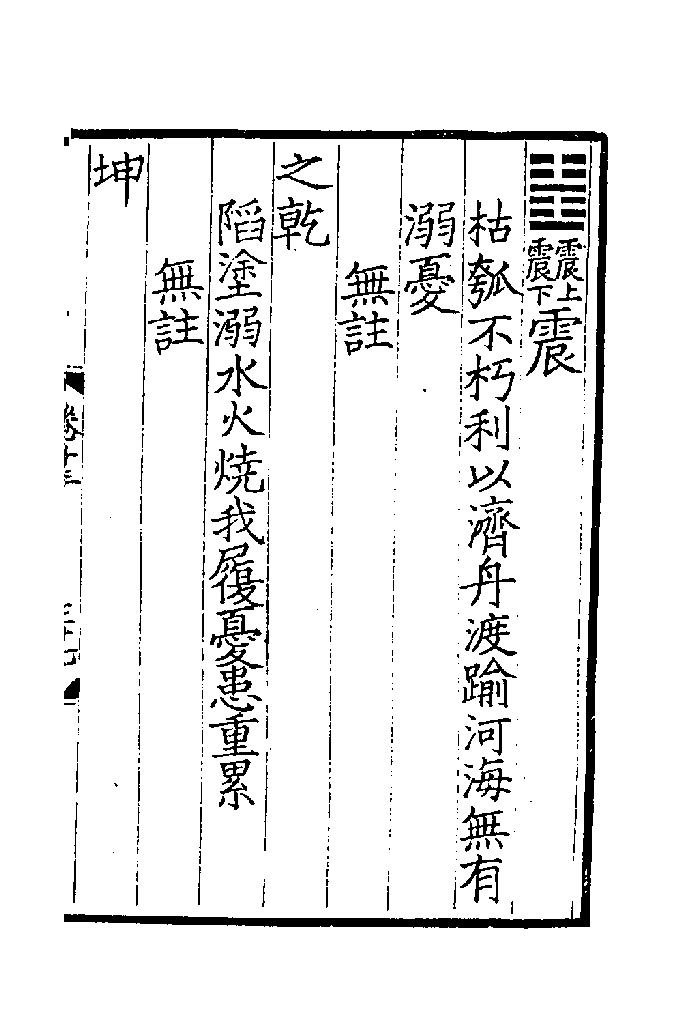 震上震下震
枯瓠不朽利以濟舟渡踰河海無有
溺憂
無註
之乾
陷塗溺水火燒我履憂患重累
無註
坤